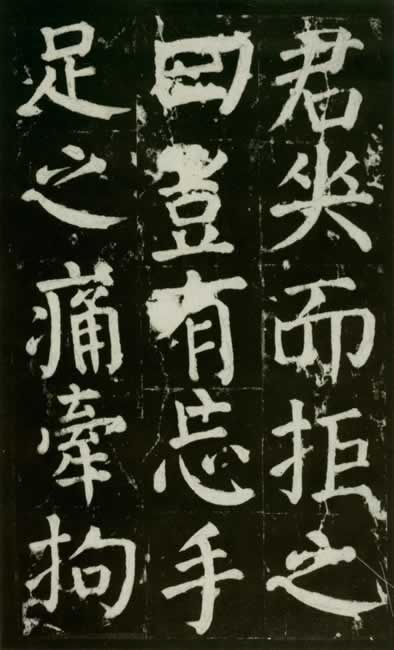 君笑而拒之
曰豈有忘手
足之痛牽拘